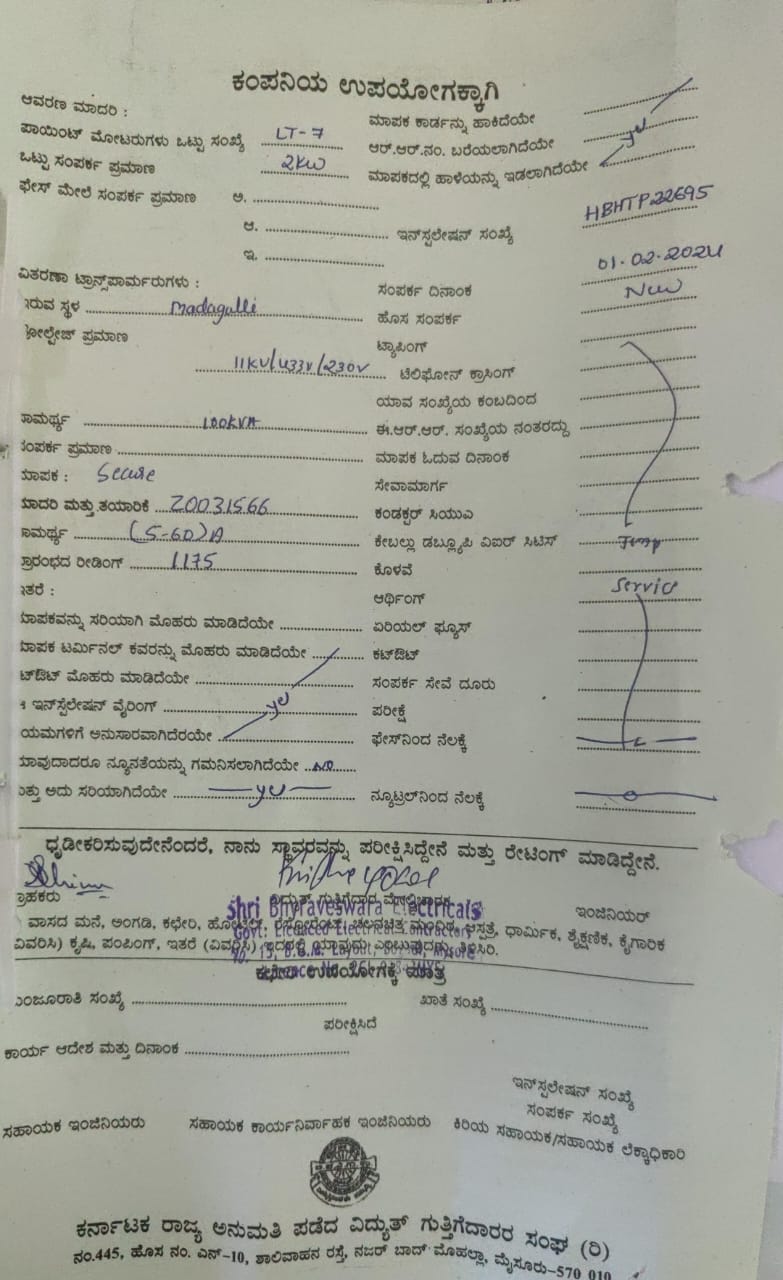 ಕಂಪನಿಯ ಉಪಯೋಗಕ್ಕಾಗಿ
ಆವರಣ ಮಾದರಿ :
ಮಾಪಕ ಕಾರ್ಡನ್ನು ಹಾಕಿದೆಯೇ
ಪಾಯಿಂಟ್ ಮೋಟರುಗಳು ಒಟ್ಟು ಸಂಖ್ಯೆ LT-7
ಆರ್.ಆರ್.ನಂ. ಬರೆಯಲಾಗಿದೆಯೇ
ಒಟ್ಟು ಸಂಪರ್ಕ ಪ್ರಮಾಣ 2KW
ಮಾಪಕದಲ್ಲಿ ಹಾಳೆಯನ್ನು ಇಡಲಾಗಿದೆಯೇ
ಫೇಸ್ ಮೇಲೆ ಸಂಪರ್ಕ ಪ್ರಮಾಣ ಅ.
ಆ. ಇನ್‌ಸ್ಪಲೇಷನ್ ಸಂಖ್ಯೆ HBHTP22695
ಇ.
01.02.2024
ವಿತರಣಾ ಟ್ರಾನ್ಸ್‌ಪಾರ್ಮರುಗಳು :
ಸಂಪರ್ಕ ದಿನಾಂಕ
ಇರುವ ಸ್ಥಳ Madagalli
ಹೊಸ ಸಂಪರ್ಕ New
ವೋಲ್ಟೇಜ್ ಪ್ರಮಾಣ
ಟ್ಯಾಪಿಂಗ್
11KV/433V/230V ಟೆಲಿಫೋನ್ ಕ್ರಾಸಿಂಗ್
ಯಾವ ಸಂಖ್ಯೆಯ ಕಂಬದಿಂದ
ಸಾಮರ್ಥ್ಯ 100KVA
ಈ.ಆರ್.ಆರ್. ಸಂಖ್ಯೆಯ ನಂತರದ್ದು
ಸಂಪರ್ಕ ಪ್ರಮಾಣ
ಮಾಪಕ ಓದುವ ದಿನಾಂಕ
ಮಾಪಕ : Secure
ಸೇವಾಮಾರ್ಗ
ಮಾದರಿ ಮತ್ತು ತಯಾರಿಕೆ 20031566
ಕಂಡಕ್ಟರ್ ಸಿಯುಎ
ಸಾಮರ್ಥ್ಯ (5-60)A
ಕೇಬಲ್ಲು ಡಬ್ಲ್ಯೂಪಿ ವಿಐರ್ ಸಿಟಿಸ್ Temp
ಪ್ರಾರಂಭದ ರೀಡಿಂಗ್ 1175
ಕೊಳವೆ
ಇತರೆ :
ಆರ್ಥಿಂಗ್ Service
ಮಾಪಕವನ್ನು ಸರಿಯಾಗಿ ಮೊಹರು ಮಾಡಿದೆಯೇ
ಏರಿಯಲ್ ಫ್ಯೂಸ್
ಮಾಪಕ ಟರ್ಮಿನಲ್ ಕವರನ್ನು ಮೊಹರು ಮಾಡಿದೆಯೇ
ಕಟ್‌ಔಟ್
ಕಟ್‌ಔಟ್ ಮೊಹರು ಮಾಡಿದೆಯೇ
ಸಂಪರ್ಕ ಸೇವೆ ದೂರು
ಇನ್‌ಸ್ಪೆಲೇಷನ್ ವೈರಿಂಗ್
ಪರೀಕ್ಷೆ
ನಿಯಮಗಳಿಗೆ ಅನುಸಾರವಾಗಿದೆರಯೇ
ಫೇಸ್‌ನಿಂದ ನೆಲಕ್ಕೆ
ಯಾವುದಾದರೂ ನ್ಯೂನತೆಯನ್ನು ಗಮನಿಸಲಾಗಿದೆಯೇ No
ಮತ್ತು ಅದು ಸರಿಯಾಗಿದೆಯೇ
ನ್ಯೂಟ್ರಲ್‌ನಿಂದ ನೆಲಕ್ಕೆ
ಧೃಡೀಕರಿಸುವುದೇನೆಂದರೆ, ನಾನು ಸ್ಥಾವರವನ್ನು ಪರೀಕ್ಷಿಸಿದ್ದೇನೆ ಮತ್ತು ರೇಟಿಂಗ್ ಮಾಡಿದ್ದೇನೆ.
ಗ್ರಾಹಕರು ವಿದ್ಯುತ್ ಗುತ್ತಿಗೆದಾರ ಮೇಲ್ವಿಚಾರಕ ಇಂಜಿನಿಯರ್
Shri Bhyraveswara Electricals
Govt. Licenced Electrical Contractors
ವಾಸದ ಮನೆ, ಅಂಗಡಿ, ಕಛೇರಿ, ಹೋಟೆಲ್, ರೆಸ್ಟೋರೆಂಟ್, ಚಲನಚಿತ್ರ ಮಂದಿರ, ಆಸ್ಪತ್ರೆ, ಧಾರ್ಮಿಕ, ಶೈಕ್ಷಣಿಕ, ಕೈಗಾರಿಕ
(ವಿವರಿಸಿ) ಕೃಷಿ, ಪಂಪಿಂಗ್, ಇತರೆ (ವಿವರಿಸಿ) ಇದರಲ್ಲಿ ಯಾವುದು ಎಂಬುವುದನ್ನು ತಿಳಿಸಿರಿ.
ಕಛೇರಿ ಉಪಯೋಗಕ್ಕೆ ಮಾತ್ರ
ಮಂಜೂರಾತಿ ಸಂಖ್ಯೆ
ಖಾತೆ ಸಂಖ್ಯೆ
ಪರೀಕ್ಷಿಸಿದೆ
ಕಾರ್ಯ ಆದೇಶ ಮತ್ತು ದಿನಾಂಕ
ಇನ್‌ಸ್ಪಲೇಷನ್ ಸಂಖ್ಯೆ
ಸಂಪರ್ಕ ಸಂಖ್ಯೆ
ಸಹಾಯಕ ಇಂಜಿನಿಯರು ಸಹಾಯಕ ಕಾರ್ಯನಿರ್ವಾಹಕ ಇಂಜಿನಿಯರು ಕಿರಿಯ ಸಹಾಯಕ/ಸಹಾಯಕ ಲೆಕ್ಕಾಧಿಕಾರಿ
ಕರ್ನಾಟಕ ರಾಜ್ಯ ಅನುಮತಿ ಪಡೆದ ವಿದ್ಯುತ್ ಗುತ್ತಿಗೆದಾರರ ಸಂಘ (ರಿ)
ನಂ.445, ಹೊಸ ನಂ. ಎನ್-10, ಶಾಲಿವಾಹನ ರಸ್ತೆ, ನಜರ್ ಬಾದ್ ಮೊಹಲ್ಲಾ, ಮೈಸೂರು-570 010